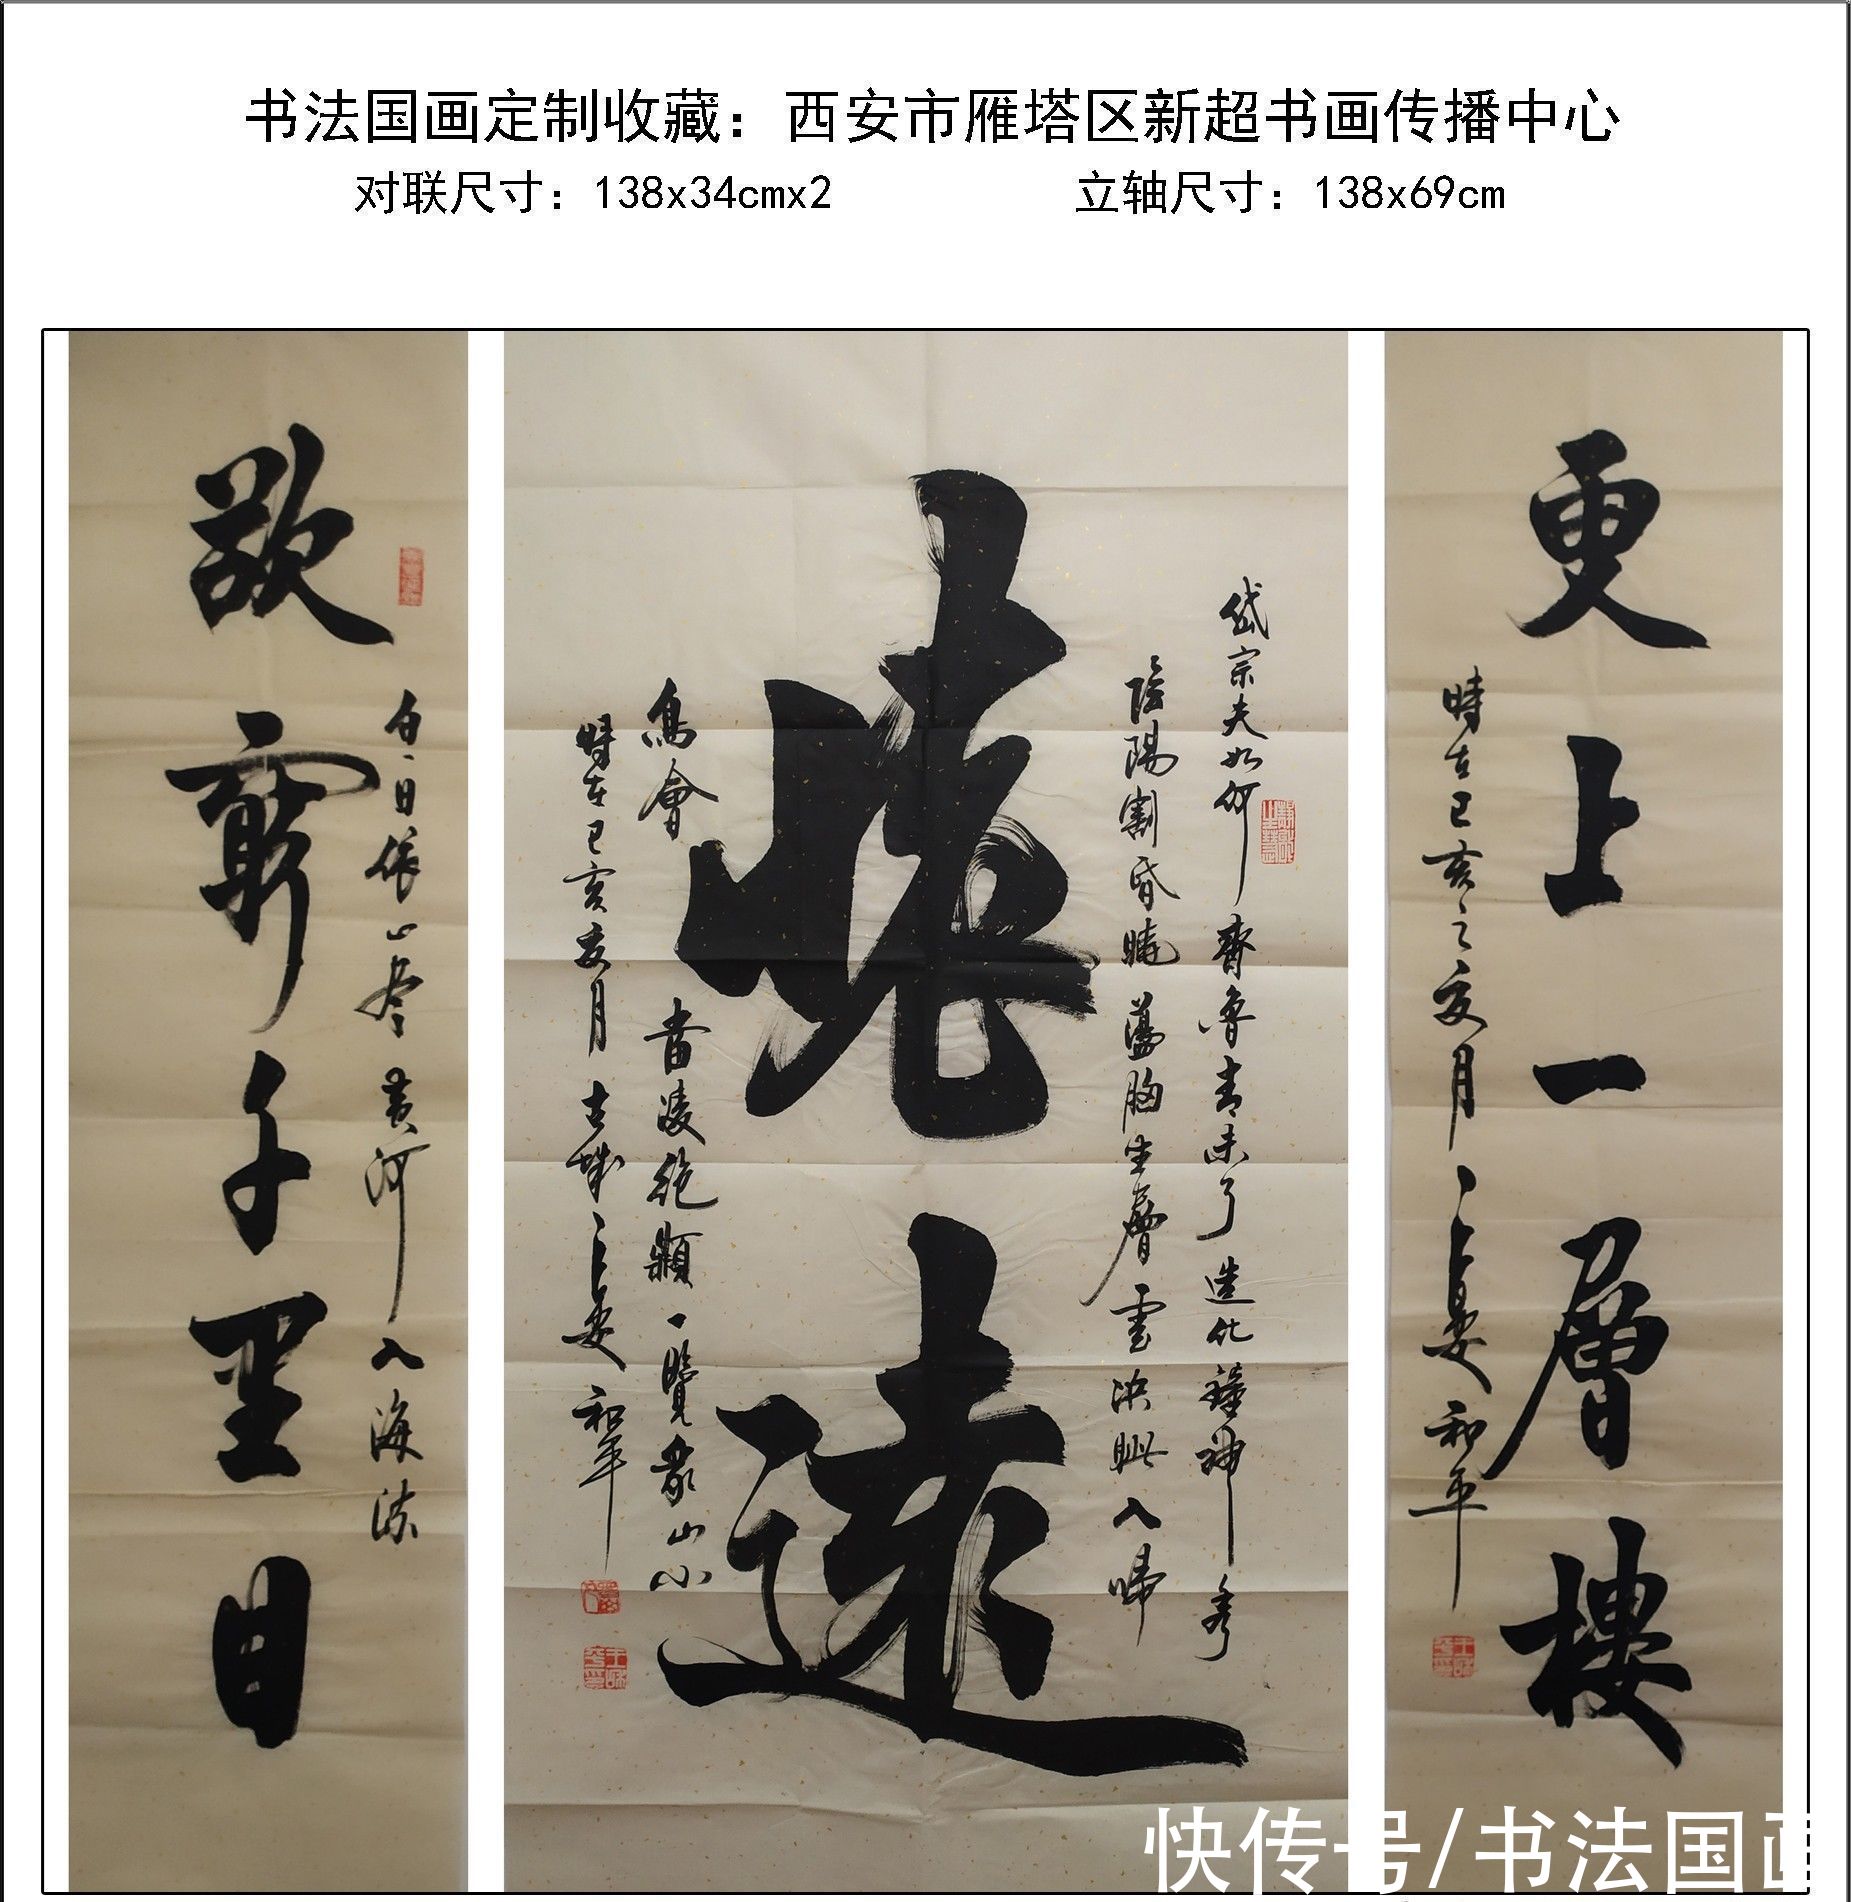 书法国画定制收藏：西安市雁塔区新超书画传播中心
对联尺寸：138x34cmx2 立轴尺寸：138x69cm
更上一层樓
時在己亥之夏月
和平
岱宗夫如何齊魯青未了造化鐘神秀
陰陽割昏曉蕩胸生層雲決眦入歸
鳥會當凌絶顛一覽衆山小
時在己亥夏月古城
和平
白日依山尽黄河入海流
欲窮千里目
快传号/书法国画